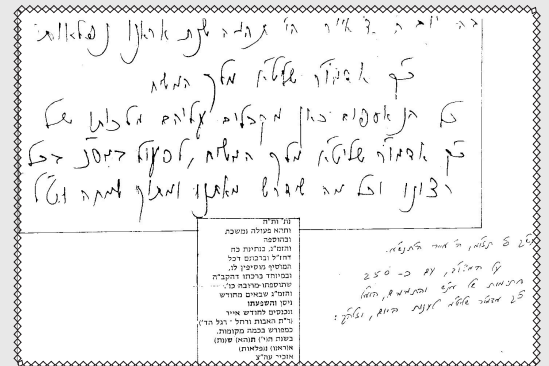 בה יום ה ד אייר ה'י תהיה שנת אראנו נפלאות:
כ"ק אדמו"ר שליט"א מלך המשיח
כל הנאספים כאן מקבלים עליהם מלכותו של
כ"ק אדמו"ר שליט"א מלך המשיח, לפעול במס"נ בכל
רצונו וכל מה שידרש מאתנו ומתוך שמחה וט"ל
נת' ות"ח
ותהא פעולה נמשכת
ובהוספה
והזמ"ג, בנתינת כח
דחז"ל וברכתם דכל
המוסיף מוסיפין לו,
ובמיוחד ברכתו דהקב"ה
שתוספתו מרובה כו',
והזמ"ג שבאים מחודש
ניסן והשפעתו
ונכנסים לחודש אייר
(ר"ת האבות ורחל - רגל הד')
כמפורש בכמה מקומות.
בשנת הוי' (תהא שנת)
אראנו) נפלאות)
אזכיר עה"צ
על הנ"ל, עם כ- 250
חתימות של אנ"ש והתמימים, הואיל
כ"ק אדמו"ר שליט"א לענות היום, וזלה"ק: